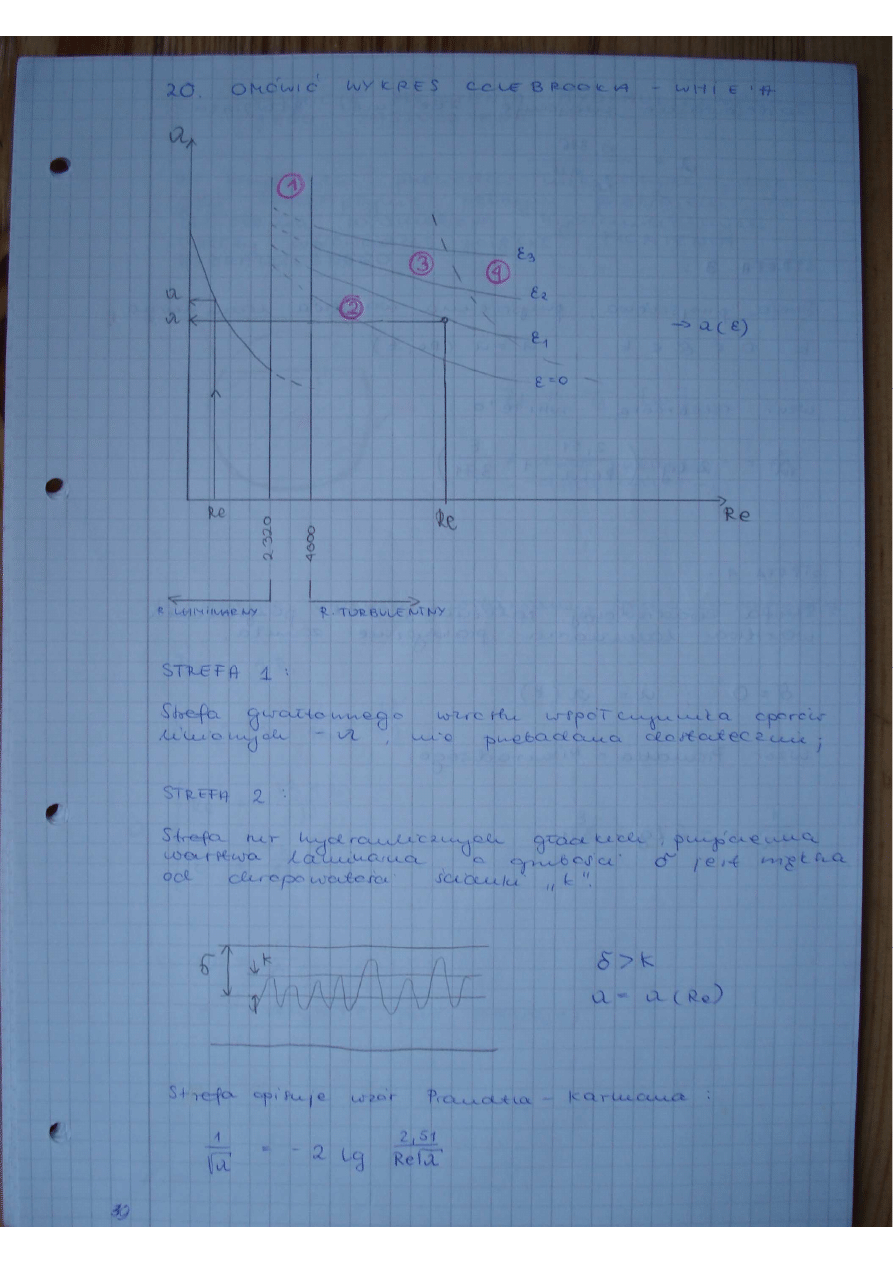 20. OMÓWIĆ WYKRES COLEBROOKA - WHITE'A
λ
1
3
4
2
ε3
ε2
ε1
ε=0
→ λ(ε)
λ
λ
Re
2 320
4000
Re
Re
R. LAMINARNY
R. TURBULENTNY
STREFA 1 :
Strefa gwałtownego wzrostu współczynnika oporów
liniowych - λ, nie przebadana dostatecznie;
STREFA 2 :
Strefa rur hydraulicznych gładkich, przyścienna
warstwa laminarna o grubości δ jest większa
od chropowatości ścianki „k”.
δ
k
δ > k
λ = λ (Re)
Strefa opisuje wzór Prandtla - Karmana :
1/√λ = - 2 lg 2,51/Re√λ
30